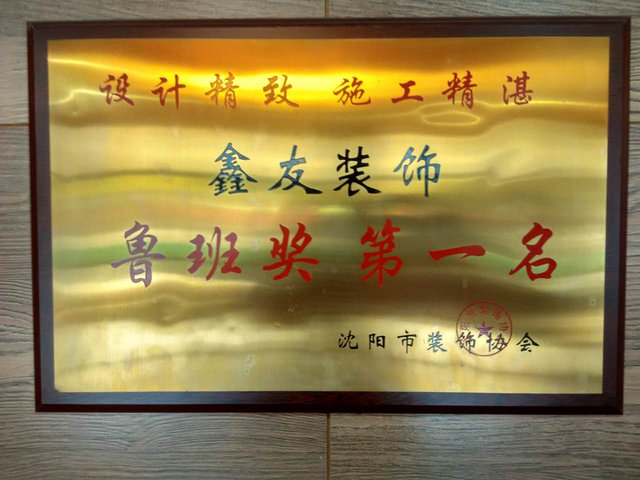 设计精致 施工精湛
鑫友装饰
鲁班奖 第一名
沈阳市装饰协会